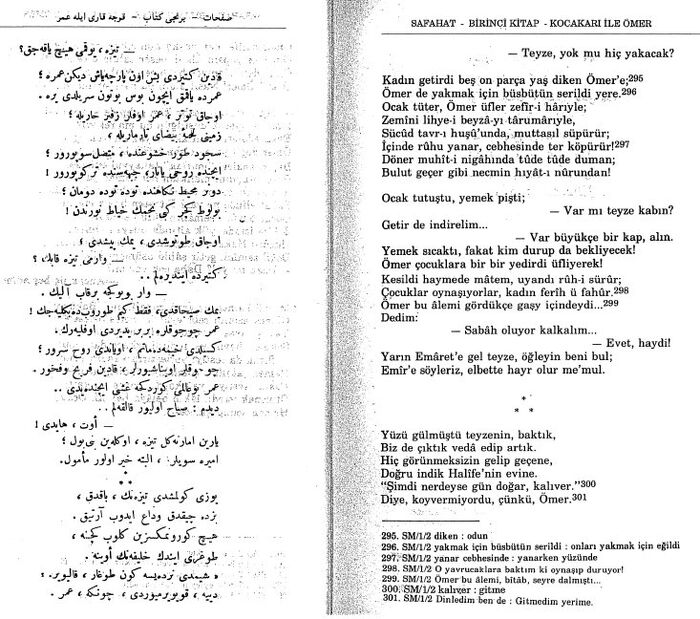 صفحات — برنجی كتاب — قوجه قاری ایله عمر
— تیزه ، یوقمی هیچ یاقه جق؟
قادین كتیردی بش اون پارچه یاش دیكن عمره ؛
عمرده یاقمق ایچون بوس بوتون سریلدی یره .
اوجاق توتر ، عمر اوفلر زفیر حاریله ؛
زمینی لحیهٔ بیضای تارماریله ،
سجود طور خشوعنده ، متصل سوپورور ؛
ایچنده روحی یانار ، جبهه سنده تر كوپورور !
دونر محیط نكاهنده توده توده دومان ؛
بولوط كچر كبی نجمك خیاط نورندن !
اوجاق طوتوشدی ، یمك پیشدی ؛
— وارمی تیزه قابك ؟
كتیرده ایندیرەلم ..
— وار بویوكجه برقاب آلیك .
یمك صیجاقدی ، فقط كم طوروب ده بكلیه جك !
عمر چوجوقلره بربر ییدیردی اوفلیه رك .
كسلدی خیمه ده ماتم ، اویاندی روح سرور ؛
چوجوقلر اوینا شیورلر ، قادین فریح وفخور .
عمر بوعالمی كوردكجه غشی ایچنده یدی ..
دیدم : صباح اولیور قالقه لم ..
— أوت ، هایدی !
یارین امارته كل تیزه ، اوكلەین بنی بول ؛
امیره سویلرز ، البته خیر اولور مأمول .
* * *
یوزی كولمشدی تیزه نك ، باقدق ،
بزده چیقدق وداع ایدوب آرتیق .
هیچ كورونمكسزین كلوب كچنه ،
طوغری ایندك خلیفه نك أوینه .
« شیمدی نرده یسه كون طوغار ، قالیویر. »
دییه ، قویویرمیوردی ، چونكه ، عمر .
SAFAHAT - BİRİNCİ KİTAP - KOCAKARI İLE ÖMER
— Teyze, yok mu hiç yakacak?
Kadın getirdi beş on parça yaş diken Ömer'e;295
Ömer de yakmak için büsbütün serildi yere.296
Ocak tüter, Ömer üfler zefîr-i hârıyle;
Zemîni lihye-i beyzâ-yı târumârıyle,
Sücûd tavr-ı huşû'unda, muttasıl süpürür;
İçinde rûhu yanar, cebhesinde ter köpürür!297
Döner muhît-i nigâhında tûde tûde duman;
Bulut geçer gibi necmin hıyât-ı nûrundan!
Ocak tutuştu, yemek pişti;
— Var mı teyze kabın?
Getir de indirelim...
— Var büyükçe bir kap, alın.
Yemek sıcaktı, fakat kim durup da bekliyecek!
Ömer çocuklara bir bir yedirdi üfliyerek!
Kesildi haymede mâtem, uyandı rûh-i sürûr;
Çocuklar oynaşıyorlar, kadın ferîh ü fahûr.298
Ömer bu âlemi gördükçe gaşy içindeydi...299
Dedim:
— Sabâh oluyor kalkalım...
— Evet, haydi!
Yarın Emâret'e gel teyze, öğleyin beni bul;
Emîr'e söyleriz, elbette hayr olur me'mul.
*
* *
Yüzü gülmüştü teyzenin, baktık,
Biz de çıktık vedâ edip artık.
Hiç görünmeksizin gelip geçene,
Doğru indik Halîfe'nin evine.
"Şimdi nerdeyse gün doğar, kalıver."300
Diye, koyvermiyordu, çünkü, Ömer.301
295. SM/1/2 diken : odun
296. SM/1/2 yakmak için büsbütün serildi : onları yakmak için eğildi
297. SM/1/2 yanar cebhesinde : yanarken yüzünde
298. SM/1/2 O yavrucaklara baktım ki oynaşıp duruyor!
299. SM/1/2 Ömer bu âlemi, bîtâb, seyre dalmıştı...
300. SM/1/2 kalıver : gitme
301. SM/1/2 Dinledim ben de : Gitmedim yerime.